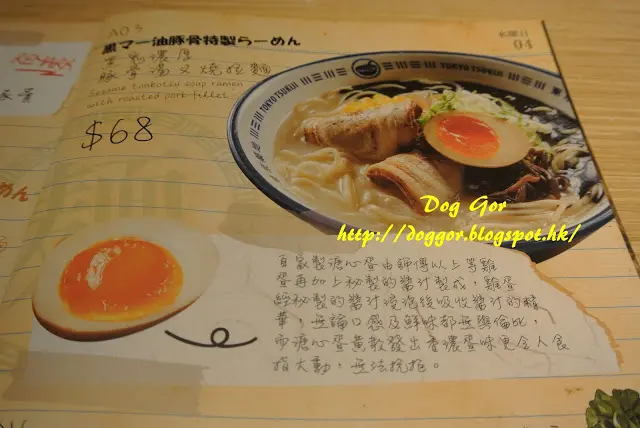 A03
黒マー油豚骨特製らーめん
水曜日
04
豚骨湯叉燒拉麵
Sesame tonkotsu soup ramen
with roasted pork fillet
$68
TOKYO TSUKIJI
TOKYO TSUKIJI
Dog Gor
http://doggor.blogspot.hk/
自家製溏心蛋由師傅以上等雞
蛋再加上秘製的醬汁製成，雞蛋
經秘製的醬汁浸泡後吸收醬汁的精
華，無論口感及鮮味都無與倫比，
而溏心蛋黃散發出香濃蛋味更令人食
指大動，無法抗拒。
めん